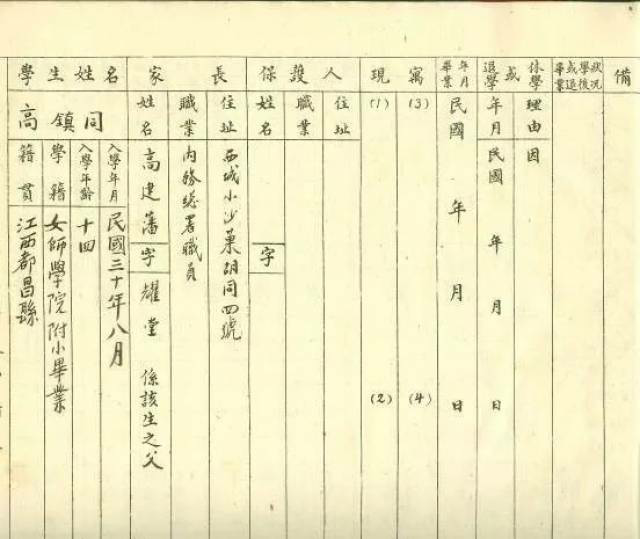 學生姓名
高鎮同
籍貫
江西都昌縣
學籍
女師學院附小畢業
入學年齡
十四
入學年月
民國三十年八月
家長
姓名
高建藩
字
耀堂
係該生之父
職業
內務總署職員
住址
西城小沙菓胡同四號
保護人
姓名
字
職業
住址
現寓
(1)
(2)
(3)
(4)
畢業年月
民國 年 月 日
退學或休學
年月
民國 年 月 日
理由
因
畢業或退學後狀況
備